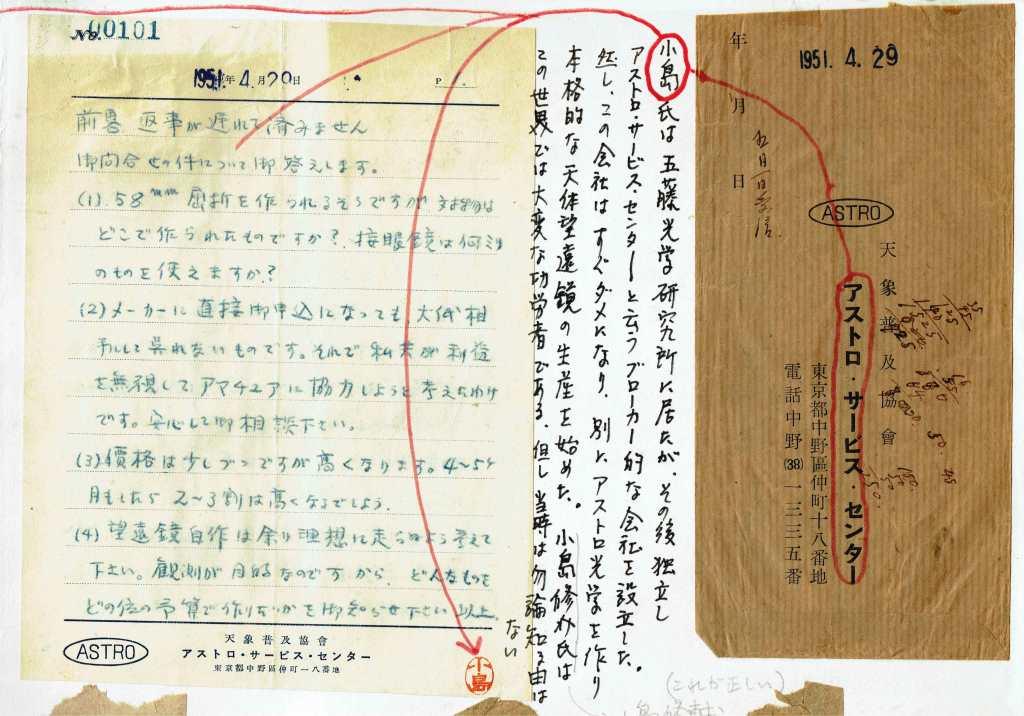 No. 00101
1951年 4月29日
P.
前畧 返事が遅れて済みません
御問合せの件について御答えします。
(1). 58mm 屈折を作られるそうですが 対物は
どこで作られたものですか?. 接眼鏡は何ミリ
のものを使えますか?
(2) メーカーに直接御申込になっても、大低相
手にして呉れないものです。それで私共が利益
を無視して アマチュアに協力しようと考えたわけ
です。安心して御相談下さい。
(3) 價格は少しづつですが高くなります。4~5ケ
月もしたら 2~3割は高くなるでしょう.
(4) 望遠鏡自作は余り理想に走らぬよう考えて
下さい。観測が目的なのですから、どんなものを
どの位の予算で作りたいかを御知らせ下さい 以上
ASTRO
天象普及協會
アストロ・サービス・センター
東京都中野區仲町一八番地
小島
小島氏は五藤光学研究所に居たが、その後独立し
アストロ・サービス・センターと云うブローカー的な会社を設立した。
然し、この会社はすぐダメになり、別に、アストロ光学を作り
本格的な天体望遠鏡の生産を始めた。小島修介氏は
この世界では大変な功労者である、但し当時は勿論知る由は
ない
(これが正しい)
1951. 4. 29
年 月 日
五月一日受信
ASTRO
天象普及協會
アストロ・サービス・センター
東京都中野區仲町十八番地
電話中野(38)一三三五番